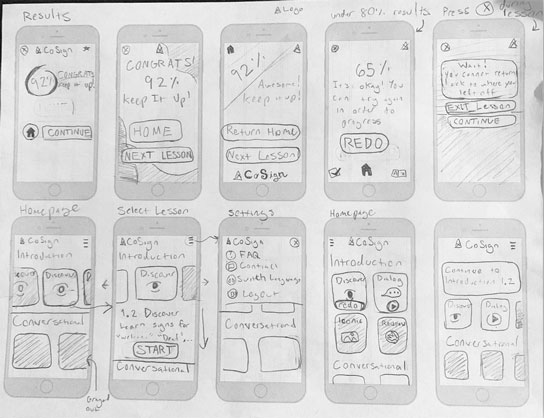 Results
Logo
under 80% results
Press X during lesson
CoSign
92%
CONGRATS!
keep it up!
CONTINUE
CONGRATS!
92%
keep It Up!
HOME
NEXT LESSON
92%
Awesome!
keep it up!
Return Home
Next Lesson
CoSign
65%
It's okay! You
can try again
in order to
progress
REDO
Wait!
You cannot return
back to where you
left off
EXIT Lesson
CONTINUE
Homepage
CoSign
Introduction
Discover
Conversational
Grayed out
Select Lesson
CoSign
Introduction
Discover
1.2 Discover
Learn signs for
START
Conversational
Settings
CoSign
FAQ
Contact
Switch Language
Logout
Conversational
Homepage
CoSign
Introduction
Discover
Dialog
redo
Conversational
CoSign
Continue to
Introduction 1.2
Dialog
Conversational